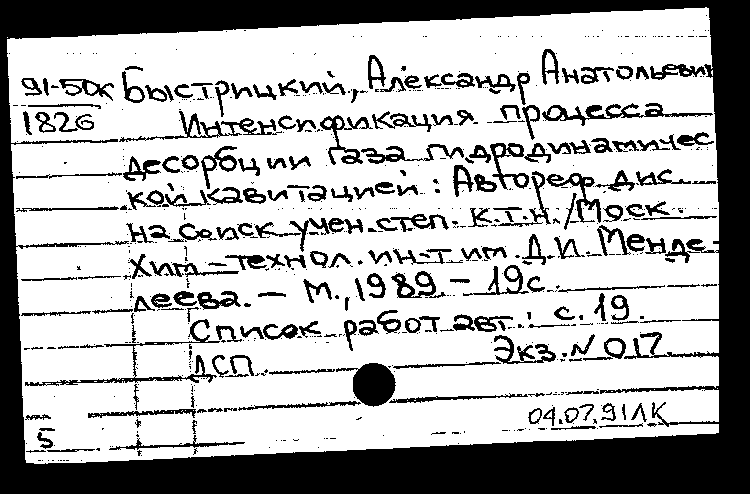 91-50к Быстрицкий, Александр Анатольевич
1826 Интенсификация процесса
десорбции газа гидродинамичес
кой кавитацией: Автореф. дис.
на соиск. учен. степ. к.т.н./Моск.
хим-технол. ин-т им. Д.И. Менде-
леева. – М., 1989. – 19с.
Список работ авт.: с. 19.
ДСП. Экз. N 017.
04.07.91ЛК
5